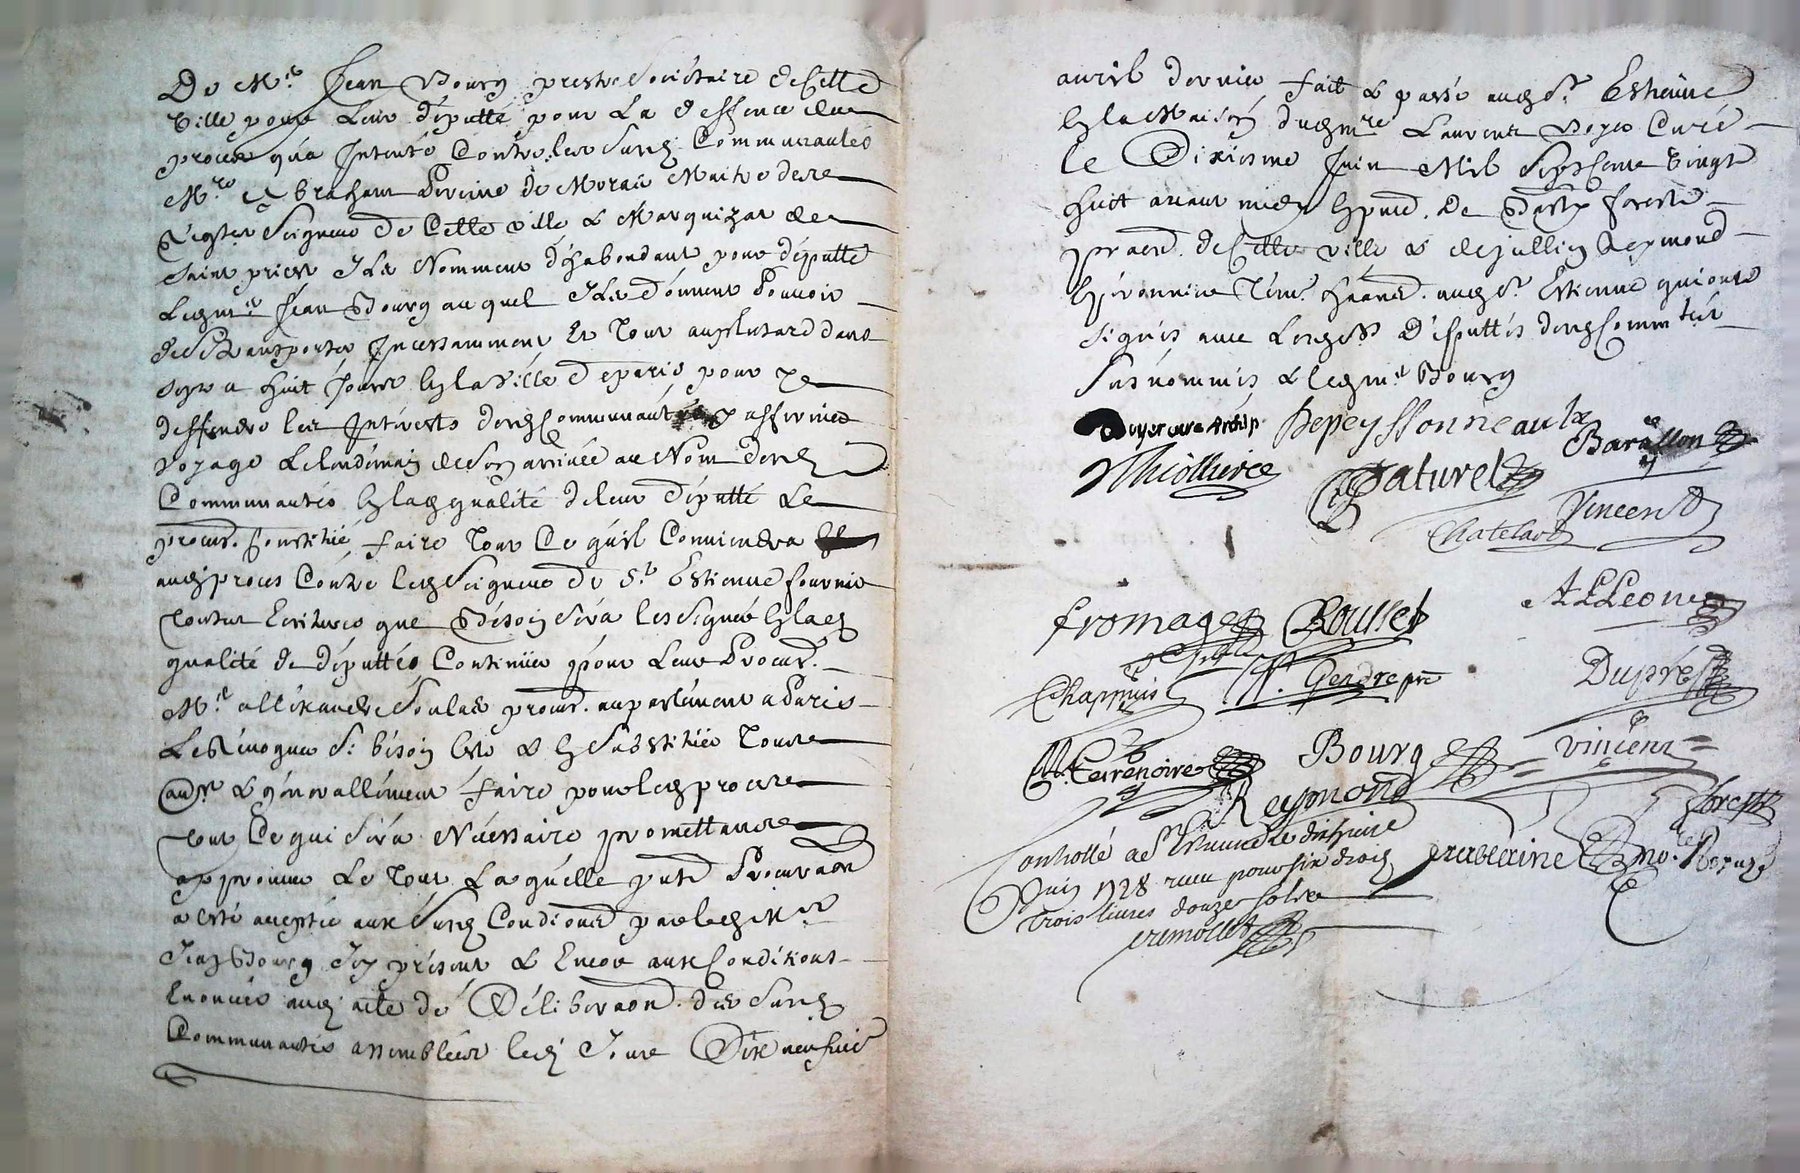 De Mre Jean Bourg prestre Sociétaire de Cette
Ville pour Leur députté pour La deffence des
proces qu'a Intenté Contre les susd Communautés
Mre Abraham de Moras Maitre des re
questes Seigneur de Cette Ville & Marquizat de
Saint priest Ils Nomment d'habondant pour députté
Ledit mre Jean Bourg auquel Ils donnent Pouvoir
de se transporter Incessamment Et Tout au plus tard dans
huit Jours En la Ville de paris, pour y
deffendre les Intérests desd Communautés y affirmer
Voyage Le lendemain de son arrivée au Nom desd
Communautés En lad qualité de leur députté Le
procur. Constitué, faire Tout Ce qu'il Conviendra
aud proces Contre led Seigneur de St Estienne fournir
Toutes Ecritures que Besoin Sera les Signer En lad
qualité de députté Continuer pour Leur Procur.
Mre allexandre procur. au parlement a Paris
Le Revoquer Si besoin Est & En Substituer Tout
autre & generallement faire pour led proces
Tout Ce qui Sera Nécessaire promettant
approuver Le Tout Laquelle pnte Procuraon
a esté acceptée aux Susd Condions par led Mre
Jean Bourg Icy présent & Encor aux Conditions
Enoncées aud acte de Déliberaon. des Susd
Communautés assemblées led Jour Dix neufvie
avril dernier fait & passé aud St Estienne
En la Maison dud mre Laurent Voyer Curé
le Dixiesme Juin Mil Sept Cent Vingt
huit avant midy En pnce. De forest
de Cette Ville & de Jullien Reymond
aud St Estienne qui ont
Signés avec Lesds Députtés desd Commtés
Susnommés & led mre Bourg
Voyer curé Depeyssonneaulx
Thiolliere Paturel Barallon
Vincent
Chatelard
fromage Rousset A L Leonne
Chappuis Gendre pre Dupré
Terrenoire Bourg Vincent
Reymond forest
Controllé a St Estienne Le dixhuict
Juin 1728 receu pour six droits
Trois livres douze sols
cremollet